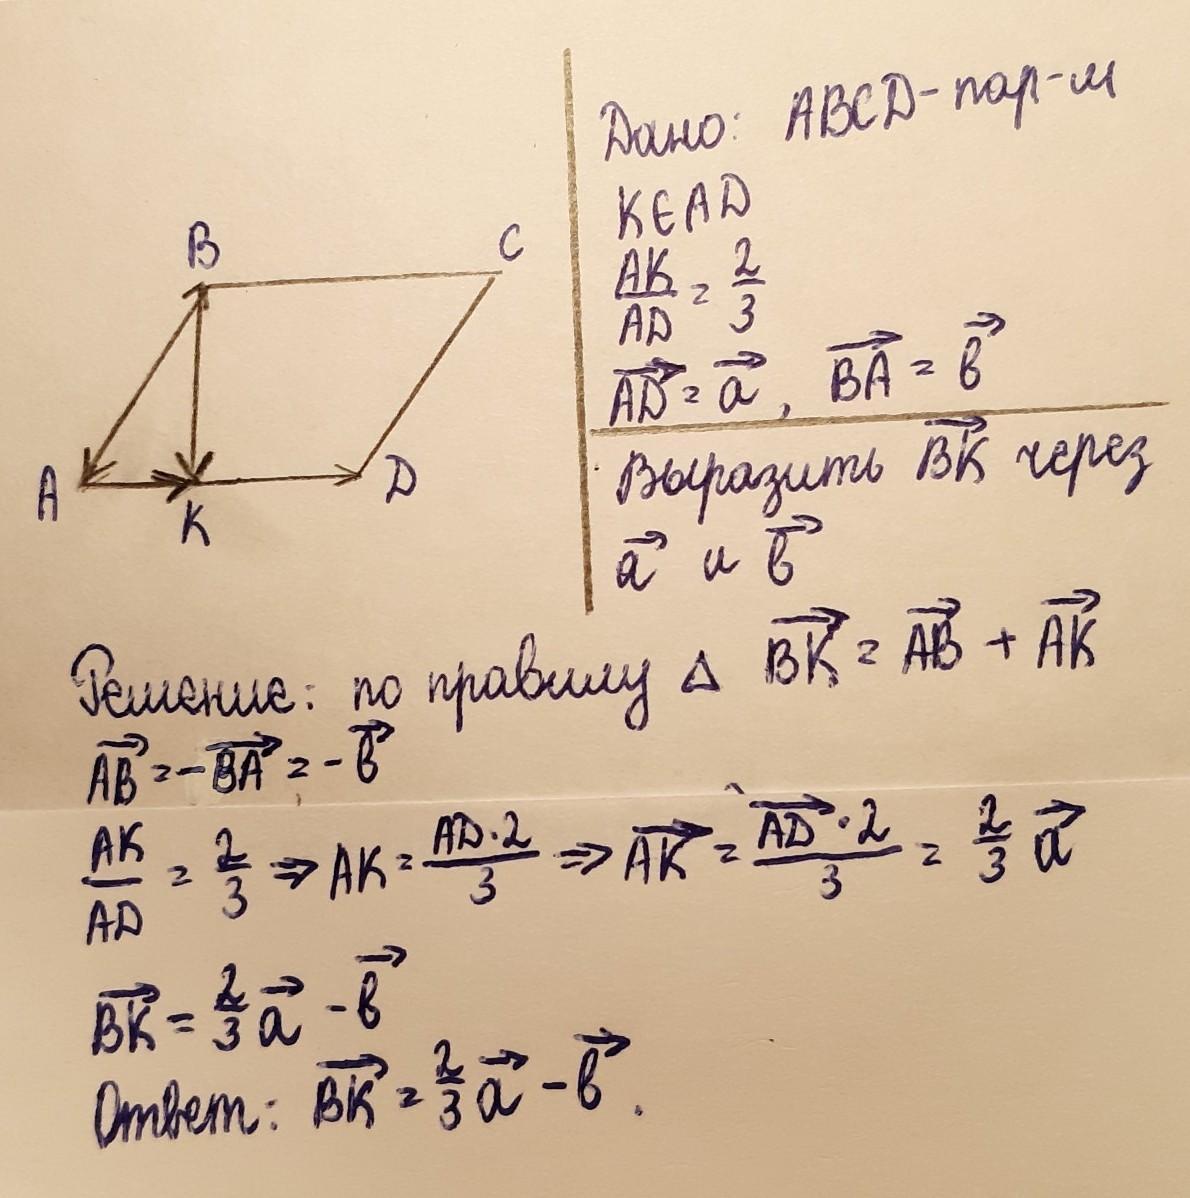 B
C
A
K
D
Дано: ABCD-пар-м
K∈AD
AK/AD = 2/3
AD⃗ = a⃗, BA⃗ = в⃗
Выразить BK⃗ через
a⃗ и в⃗
Решение: по правилу △ BK⃗ = AB⃗ + AK⃗
AB⃗ = -BA⃗ = -в⃗
AK/AD = 2/3 ⇒ AK = AD·2/3 ⇒ AK⃗ = AD⃗·2/3 = 2/3 a⃗
BK⃗ = 2/3 a⃗ - в⃗
Ответ: BK⃗ = 2/3 a⃗ - в⃗.